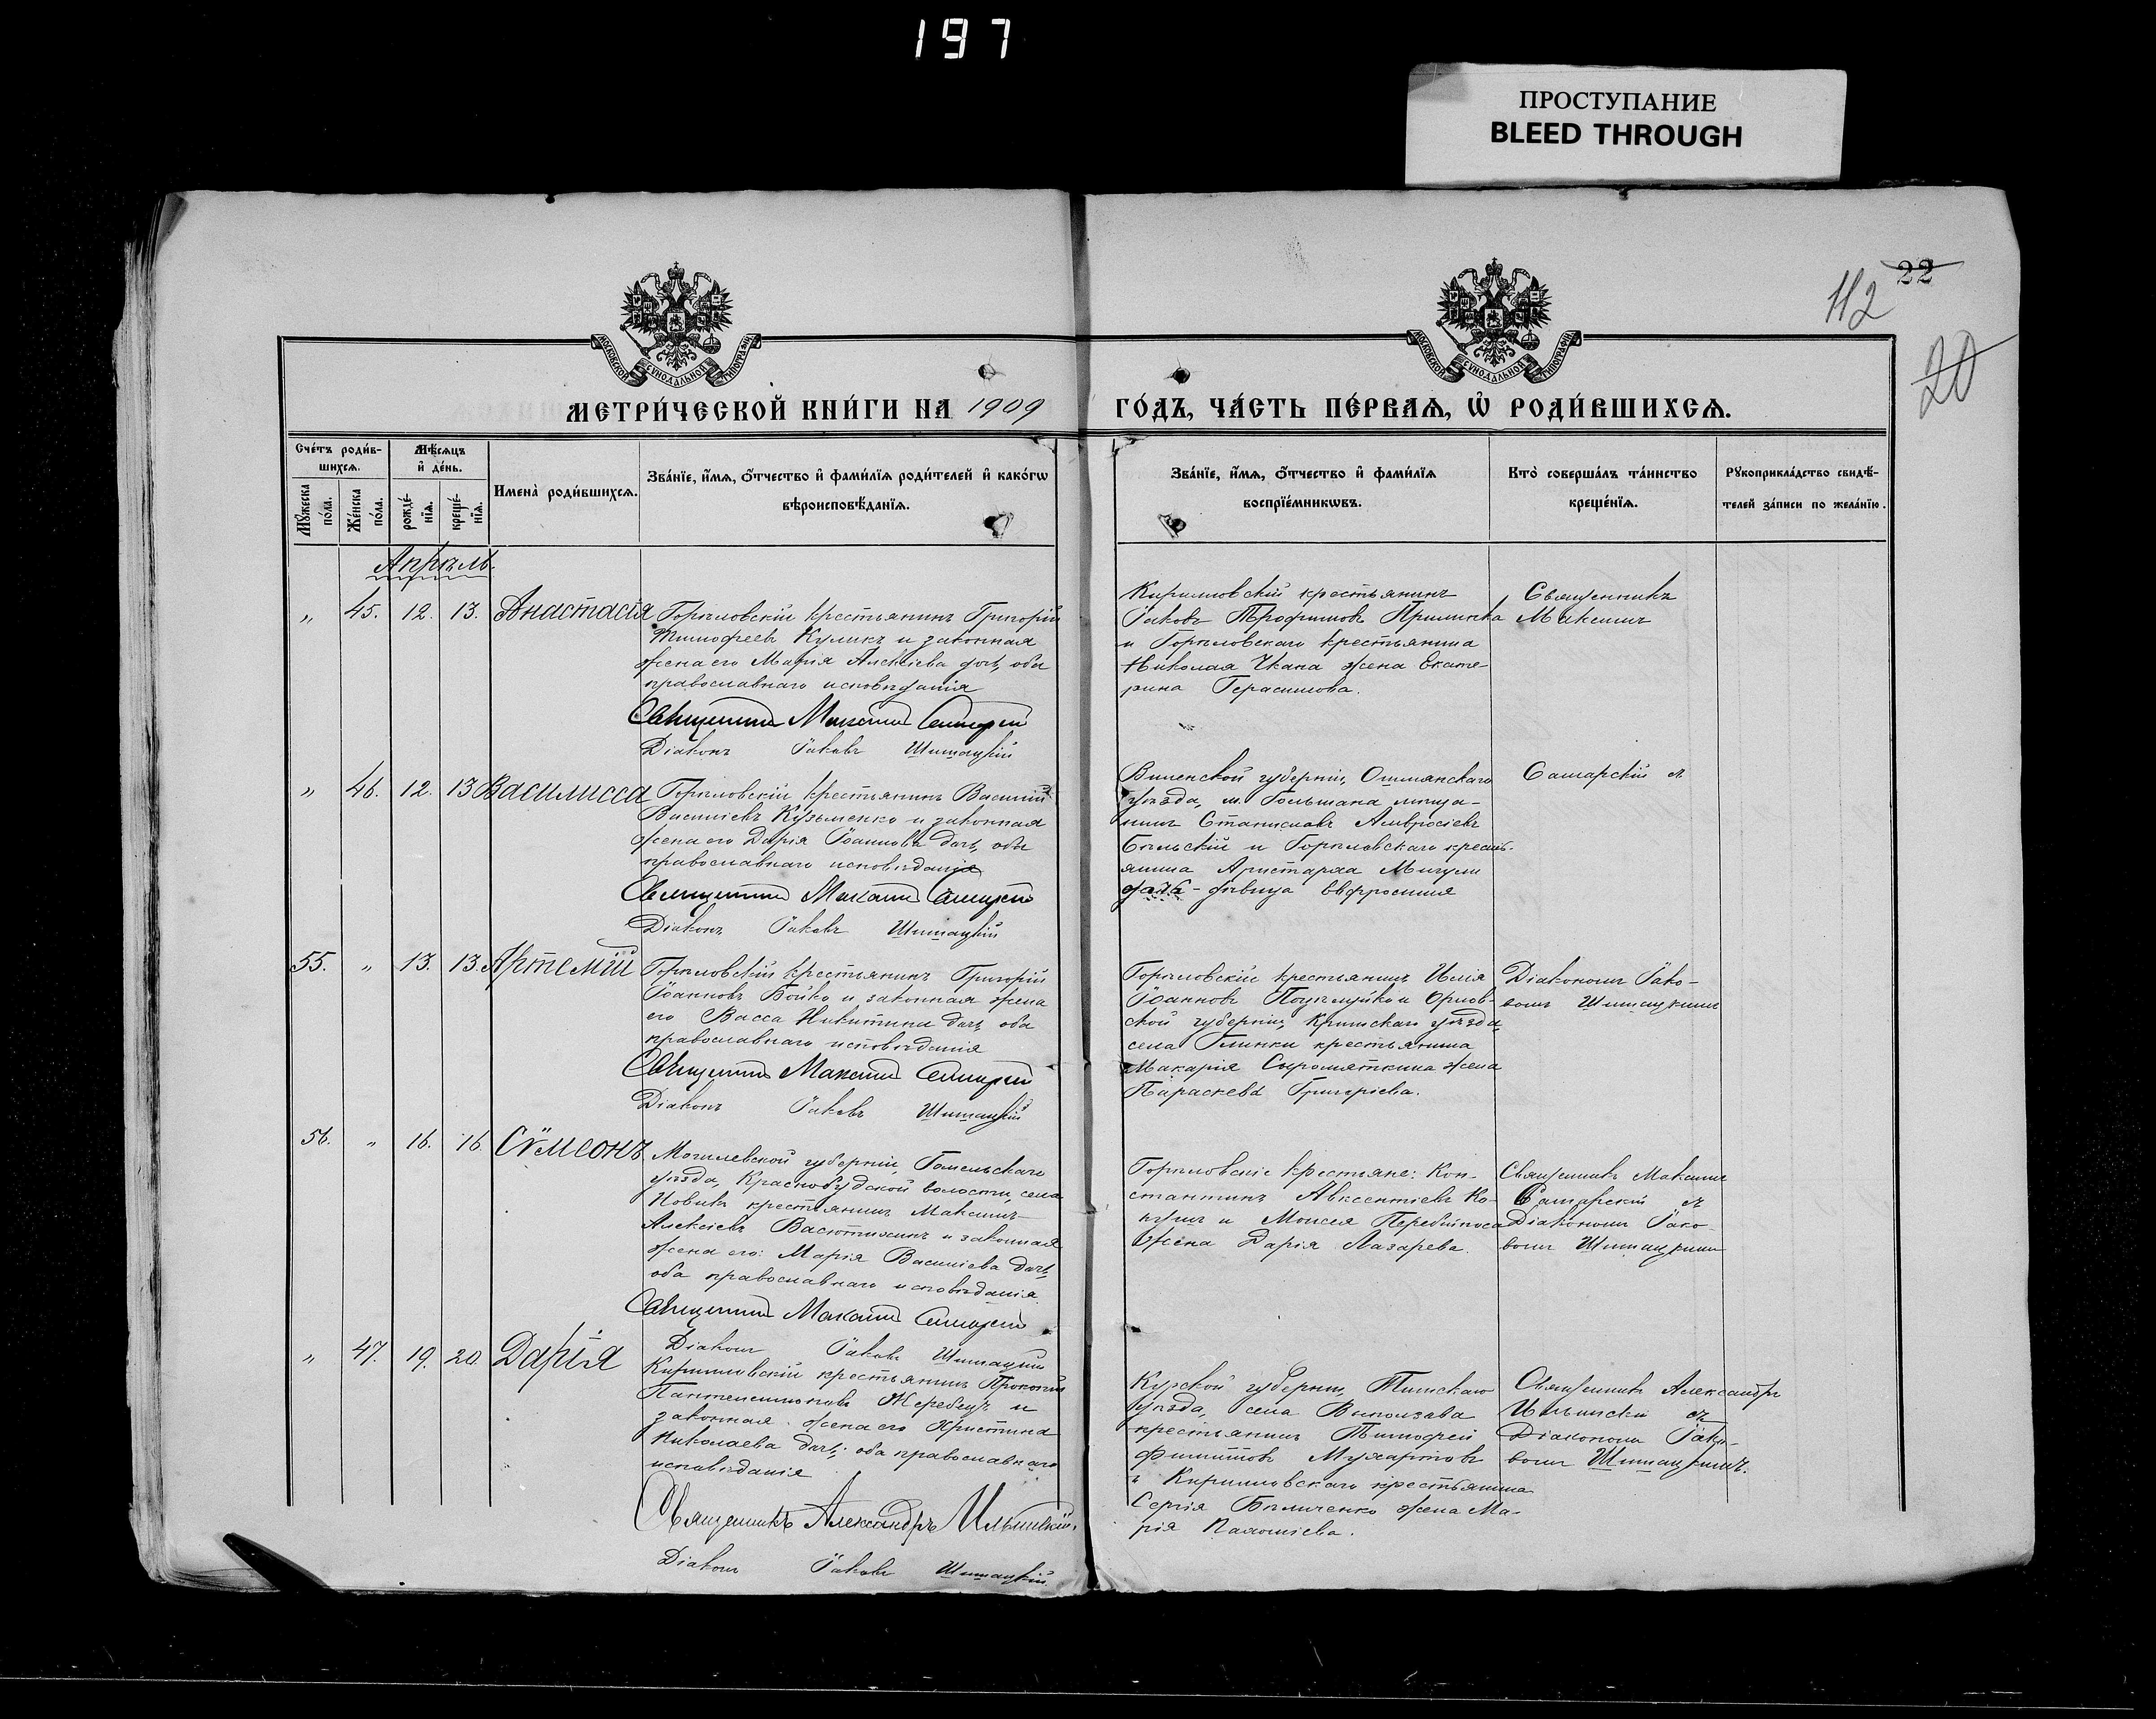 197
ПРОСТУПАНИЕ
BLEED THROUGH
22
112
20
МОСКОВСКОЙ СѴНОДАЛЬНОЙ ТИПОГРАФІИ
МОСКОВСКОЙ СѴНОДАЛЬНОЙ ТИПОГРАФІИ
МЕТРИ́ЧЕСКОЙ КНИ́ГИ НА 1909
ГО́ДЪ, ЧА́СТЬ ПЕ́РВАѦ, Ѡ҆ РОДИ́ВШИХСѦ.
Сче́тъ роди́в-
шихсѧ.
Мѣ́сѧцъ
и҆ де́нь.
Мꙋ́жеска по́ла.
Же́нска по́ла.
рожде́-нїѧ.
креще́-нїѧ.
Имена̀ роди́вшихсѧ.
Зва́нїе, и҆́мѧ, ѻ҆́тчество и҆ фами́лїѧ роди́телей и҆ како́гѡ
вѣроисповѣ́данїѧ.
Зва́нїе, и҆́мѧ, ѻ҆́тчество и҆ фами́лїѧ
воспрїе́мникѡвъ.
Кто̀ соверша́лъ та́инство
креще́нїѧ.
Рꙋкоприкла́дство свидѣ́-
телей за́писи по жела́нїю.
Апрѣль.
„ 45. 12. 13. Анастасія
Горѣловскій крестьянинъ Григорій
Тимофеевъ Куликъ и законная
жена его Марія Алексіева дочь, оба
православнаго исповѣданія
Священникъ Максимъ Самарскій
Діаконъ Іаковъ Шишацкій
Кирилловскій крестьянинъ
Іаковъ Трофимовъ
и Горѣловскаго крестьянина
Николая Чкана жена Екате-
рина Герасимова.
Священникъ
Максимъ
„ 46. 12. 13 Василисса
Горѣловскій крестьянинъ Василій
Василіевъ Кузьменко и законная
жена его Дарія Іоаннова дочь, оба
православнаго исповѣданія
Священникъ Максимъ Самарскій
Діаконъ Іаковъ Шишацкій
Виленской губерніи, Ошмянскаго
уѣзда, м. Гольшана мѣща-
нинъ Станиславъ Амвросіевъ
Бѣльскій и Горѣловскаго кресть-
янина Аристарха
дочь - дѣвица Евфросинія
Самарскій съ
55. „ 13. 13. Артемій
Горѣловскій крестьянинъ Григорій
Іоанновъ Бойко и законная жена
его Васса Никитина дочь оба
православнаго исповѣданія
Священникъ Максимъ Самарскій
Діаконъ Іаковъ Шишацкій
Горѣловскій крестьянинъ Илія
Іоанновъ Поцѣлуйко и Орлов-
ской губерніи, уѣзда,
села Глинки крестьянина
Макарія Сыромяткина жена
Параскева Григоріева.
Діакономъ Іако-
вомъ Шишацкимъ
56. „ 16. 16. Сѵмеонъ
Могилевской губерніи, Гомельскаго
уѣзда, Краснобудской волости, села
крестьянинъ Максимъ
Алексіевъ и законная
жена его: Марія Василіева дочь,
оба православнаго исповѣданія
Священникъ Максимъ Самарскій
Діаконъ Іаковъ Шишацкій
Горѣловскіе крестьяне: Кон-
стантинъ Авксентіевъ
и Моисея Перебійноса
жена Дарія Лазарева.
Священникъ Максимъ
Самарскій съ
Діакономъ Іако-
вомъ Шишацкимъ
„ 47. 19. 20. Дарія
Кирилловскій крестьянинъ Прокопій
Пантелеимоновъ Жеребецъ и
законная жена его Христина
Николаева дочь; оба православнаго
исповѣданія
Священникъ Александръ Ильинскій.
Діаконъ Іаковъ Шишацкій
Курской губерніи, Тимскаго
уѣзда, села Выползава
крестьянинъ Тимофей
Филипповъ
и Кирилловскаго крестьянина
Сергія Бѣличенко жена Ма-
рія
Священникъ Александръ
Ильинскій съ
Діакономъ Іако-
вомъ Шишацкимъ.